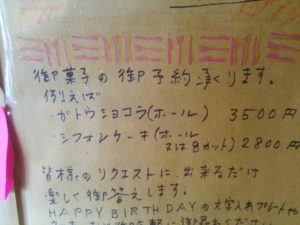 御菓子の御予約承ります。
例えば
・ガトウショコラ(ホール) 3500円
・シフォンケーキ(ホール
又は8カット) 2800円
皆様のリクエストに出来るだけ
楽しく御答えします。
HAPPY BIRTHDAYの文字入れプレートや